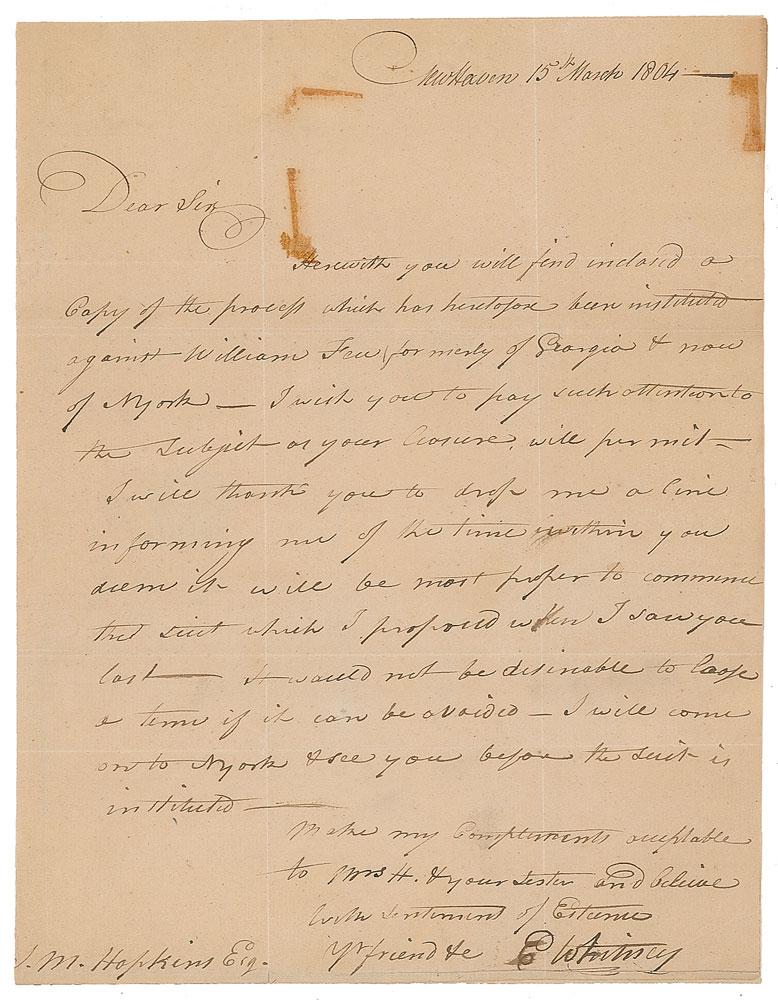 New Haven 15th March 1804
Dear Sir
Herewith you will find inclosed a
Copy of the process which has heretofore been instituted
against William Few (formerly of Georgia & now
of NYork — I wish you to pay such attention to
the Subject as your Leasure, will permit —
I will thank you to drop me a line
informing me of the time within you
deem it will be most proper to commence
the suit which I proposed when I saw you
last — It would not be desirable to loose
a term if it can be avoided — I will come
on to NYork & see you before the suit is
instituted —
Make my Compliments acceptable
to Mrs H. & your Sister and believe
with sentiment of Esteem
Yr friend &c E Whitney
S. M. Hopkins Esq.